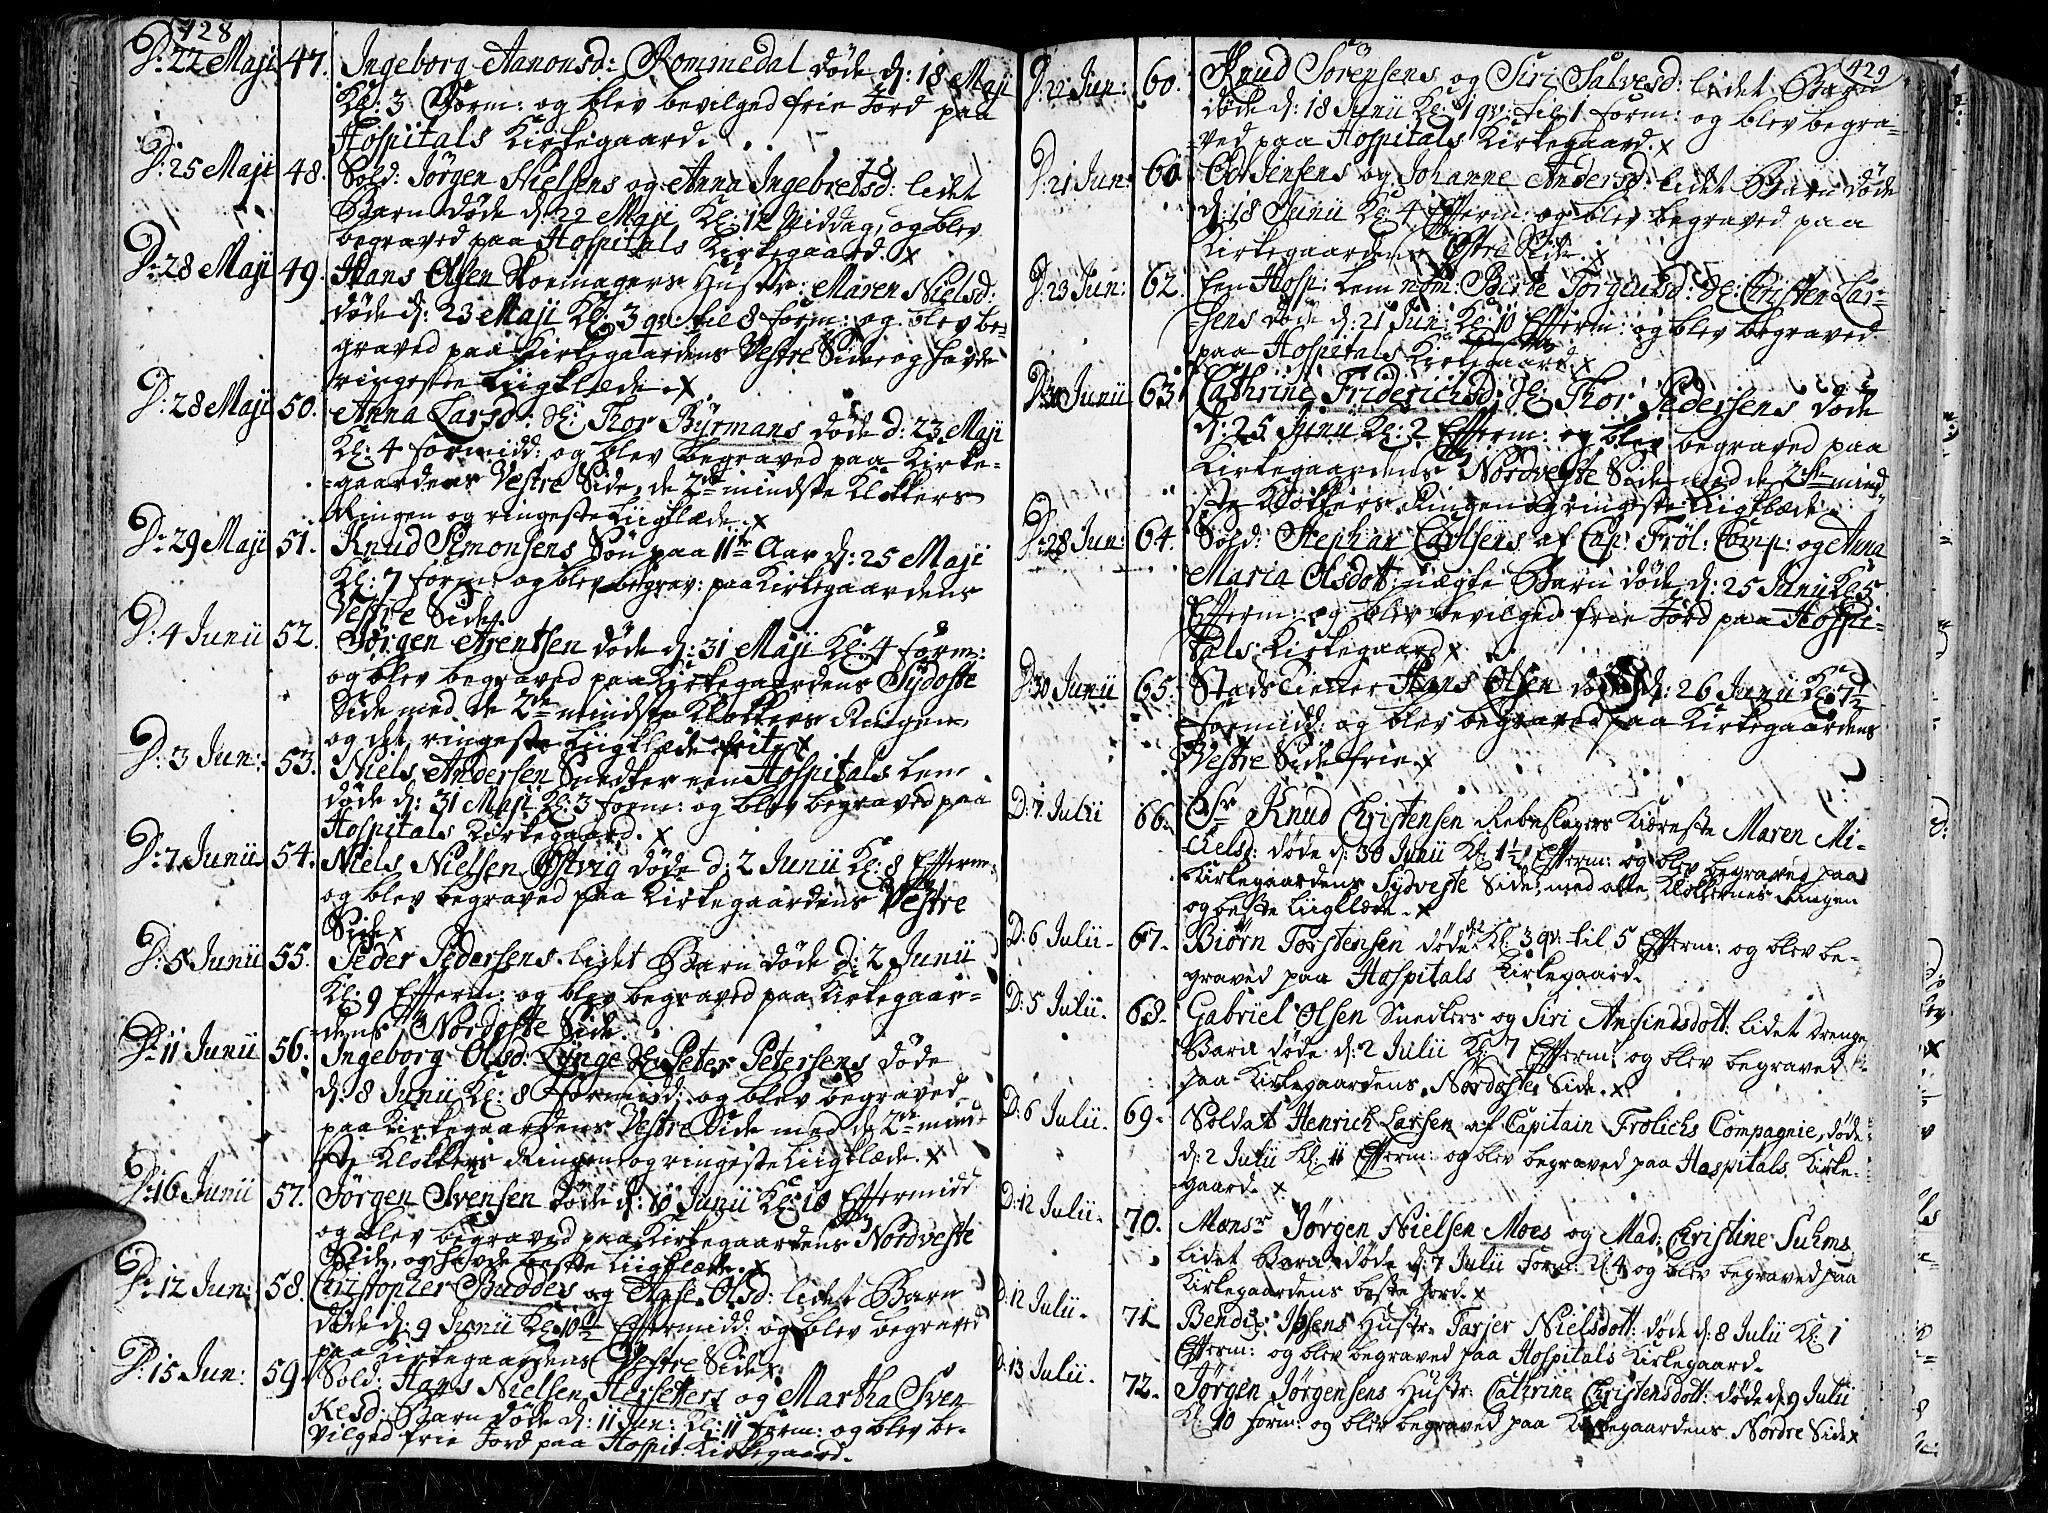 428
D: 22 Maji 47. Ingeborg Aanonsd: Rommedal døde d: 18 Maji
Kl: 3 Form: og blev bevilged frie Jord paa
Hospitals Kirkegaard.
D: 25 Maji 48. Sold: Jørgen Nielsens og Anna Ingebretsd: lidet
Barn døde d: 22 Maji Kl: 12 Middag, og blev
begraved paa Hospitals Kirkegaard. x
D: 28 Maji 49. Hans Olsen Skoemagers Hustr: Maren Nielsd:
døde d: 23 Maji Kl: 3 qv: til 8 form: og blev be=
graved paa Kirkegaardens Vestre Side og havde
ringeste Liigklæde. x
D: 28 Maji 50. Anna Larsd: Thor Byrmans døde d: 23 Maji
Kl: 4 formidd: og blev begraved paa Kirke=
=gaardens Vestre Side, de 2de mindste Klokkers
Ringen og ringeste Liigklæde. x
D: 29 Maji 51. Knud Simonsens Søn paa 11te Aar d: 25 Maji
Kl: 7 form: og blev begrav: paa Kirkegaardens
Vestre Side.
D: 4 Junii 52. Jørgen Arentsen døde d: 31 Maji Kl: 4 form:
og blev begraved paa Kirkegaardens Sydoste
Side med de 2de mindste Klokkers Ringen
og det ringeste Liigklæde frit. x
D: 3 Jun: 53. Niels Andersen Snedker een Hospitals Lem
døde d: 31 Maji Kl: 3 form: og blev begraved paa
Hospitals Kirkegaard. x
D: 7 Junii 54. Niels Nielsen Østvig døde d: 2 Junii Kl: 8 Efferm:
og blev begraved paa Kirkegaardens Vestre
Side x
D: 5 Junii 55. Peder Pedersens lidet Barn døde d: 2 Junii
Kl: 9 Efferm: og blev begraved paa Kirkegaar=
=dens Nordoste Side.
D: 11 Junii 56. Ingeborg Olsd: Lynge Peter Petersens døde
d: 8 Junii Kl: 8 formidd: og blev begraved
paa Kirkegaardens Vestre Side med de 2de mind=
ste Klokkers Ringen og ringeste Liigklæde. x
D: 16 Junii 57. Jørgen Svensen døde d: 10 Junii Kl: 10 Effermidd
og blev begraved paa Kirkegaardens Nordveste
Side, og havde beste Liigklæde. x
D: 12 Jun: 58. Christopher Buddes og Aase Olsd: lidet Barn
døde d: 9 Junii Kl: 10½ Effermidd: og blev begraved
paa Kirkegaardens Vestre Side x
D: 15 Jun: 59. Sold: Hans Nielsen Hersetters og Martha Sven
Kesd: Barn døde d: 11 Jun: Kl: 11 form: og blev be=
vilged frie Jord paa Hospit: Kirkegaard.
429
D: 22 Jun: 60. Knud Sørensens og Siri Salvesd: lidet Barn
døde d: 18 Junii Kl: 1 qv: til 1 form: og blev begra=
=ved paa Hospitals Kirkegaard. x
D: 21 Jun: 60 Od Jensens og Johanne Andersd: lidet Barn døde
d: 18 Junii Kl: 4 Efferm: og blev begraved paa
Kirkegaardens Østre Side. x
D: 23 Jun: 62. Een Hosp: Lem nom: Birte Torgiusd: Christen Lar=
=sens døde d: 21 Jun: Kl: 10 Efferm: og blev begraved
paa Hospitals Kirkegaard. x
D: 30 Junii 63 Cathrine Friderichsd: Thor Pedersens døde
d: 25 Junii Kl: 2 Efferm: og blev begraved paa
Kirkegaardens Nordveste Side med de 2de mind=
ste Klokkers Ringen og ringeste Liigklæde.
D: 28 Jun: 64. Sold: Stephar Carlsens af Cap: Frøl: Comp: og Anna
Maria Olsdott: uægte Barn døde d: 25 Junii Kl: 5
Efferm: og blev bevilged frie Jord paa Hospi=
tals: Kirkegaard x
D: 30 Junii 65. Stads Tienner Hans Olsen døde d: 26 Junii Kl: 7½
formidd: og blev begraved paa Kirkegaardens
Vestre Side frie. x
D: 7 Julii 66. Sr Knud Christensen Rebeslagers Kiæreste Maren Mi=
=chelsd: døde d: 30 Junii Kl: 1½ Efferm: og blev begraved paa
Kirkegaardens Sydveste Side, med alle Klokkernes Ringen
og beste Liigklæde. x
D: 6 Julii 67. Biørn Torstensen døde Kl: 3 qv: til 5 Efferm: og blev be=
graved paa Hospitals Kirkegaard.
D: 5 Julii 68. Gabriel Olsen Snedkers og Siri Ansindsdott: lidet drenge
Barn døde d: 2 Julii Kl: 7 Efferm: og blev begraved
paa Kirkegaardens Nordoste Side. x
D: 6 Julii 69. Soldat Henrich Larsen af Capitain Frolichs Compagnie, døde
d: 2 Julii Kl: 11 Efferm: og blev begraved paa Hospitals Kirke=
=gaard. x
D: 12 Julii 70. Monsr Jørgen Nielsen Moes og Mad: Christine Suhms
lidet Barn døde d: 7 Julii form: Kl 4 og blev begraved paa
Kirkegaardens beste Jord. x
D: 12 Julii 71 Bendix Ipsens Hustr: Tarjer Nielsdott: døde d: 8 Julii Kl: 1
Efferm: og blev begraved paa Hospitals Kirkegaard.
D: 13 Julii 72. Jørgen Jørgensens Hustr: Cathrine Christensdott: døde d: 9 Julii
Kl 10 form: og blev begraved paa Kirkegaardens Nordre Side x